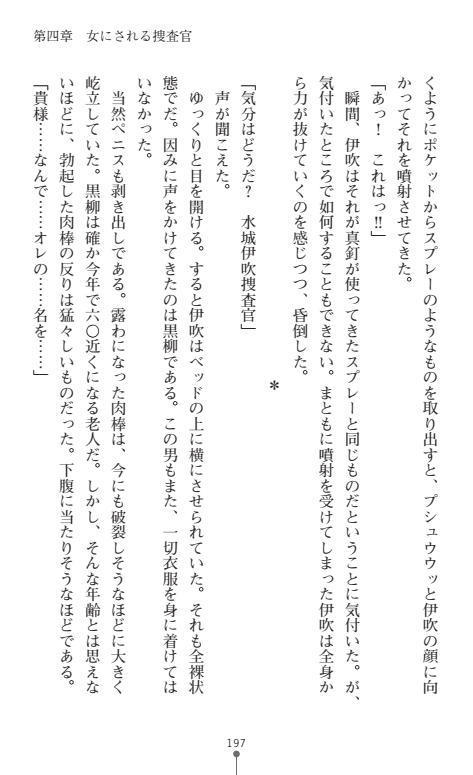 第四章　女にされる捜査官
くようにポケットからスプレーのようなものを取り出すと、プシュウウッと伊吹の顔に向
かってそれを噴射させてきた。
「あっ！　これはっ‼」
　瞬間、伊吹はそれが真釘が使ってきたスプレーと同じものだということに気付いた。が、
気付いたところで如何することもできない。まともに噴射を受けてしまった伊吹は全身か
ら力が抜けていくのを感じつつ、昏倒した。
＊
「気分はどうだ？　水城伊吹捜査官」
　声が聞こえた。
　ゆっくりと目を開ける。すると伊吹はベッドの上に横にさせられていた。それも全裸状
態でだ。因みに声をかけてきたのは黒柳である。この男もまた、一切衣服を身に着けては
いなかった。
　当然ペニスも剥き出しである。露わになった肉棒は、今にも破裂しそうなほどに大きく
屹立していた。黒柳は確か今年で六〇近くになる老人だ。しかし、そんな年齢とは思えな
いほどに、勃起した肉棒の反りは猛々しいものだった。下腹に当たりそうなほどである。
「貴様……なんで……オレの……名を……」
197